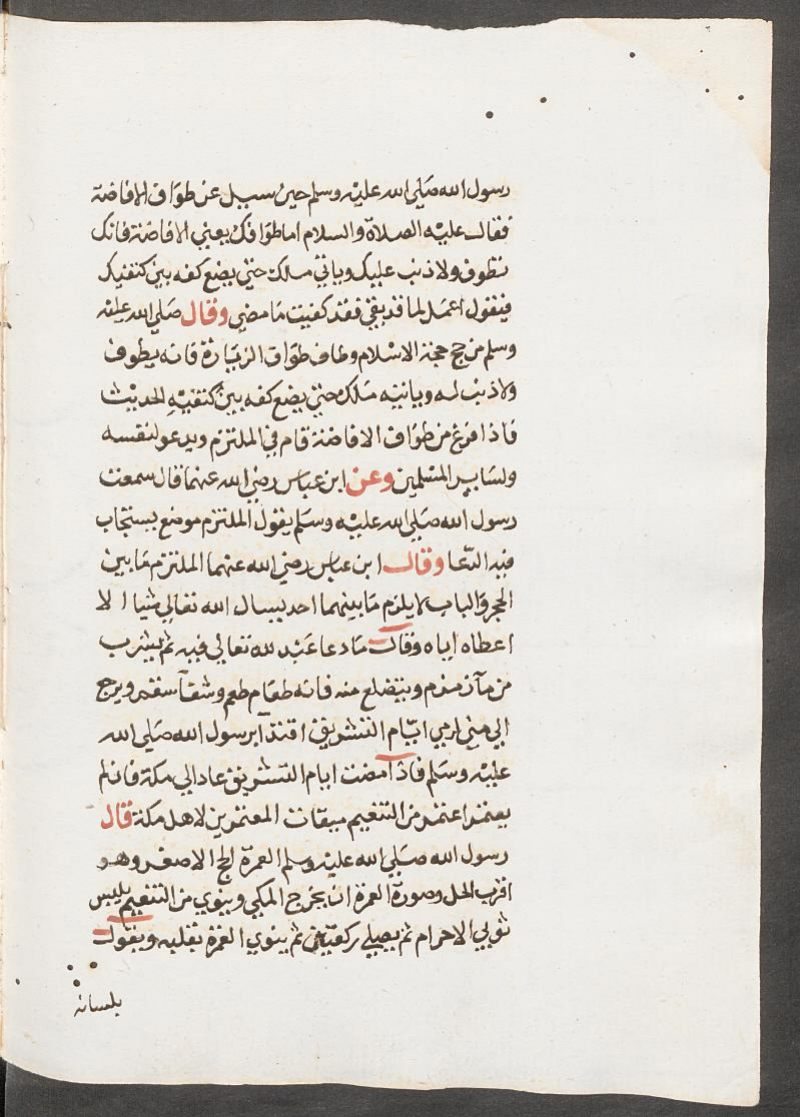 رسول الله صلي الله عليه وسلم حين سيل عن طواف الافاضة
فقال عليه الصلاة والسلام اما طوافك يعني الافاضة فانك
تطوف ولا ذنب عليك وياتي ملك حتي يضع كفه بين كتفيك
فيقول اعمل لما قد بقي فقد كفيت ما مضي وقال صلي الله عليه
وسلم من حج حجة الاسلام وطاف طواف الزيارة فانه يطوف
ولا ذنب له وياتيه ملك حتي يضع كفه بين كتفيه الحديث
فاذا فرغ من طواف الافاضة قام في الملتزم ويدعو لنفسه
ولساير المسلمين وعن ابن عباس رضي الله عنهما قال سمعت
رسول الله صلي الله عليه وسلم يقول الملتزم موضع يستجاب
فيه الدعا وقال ابن عباس رضي الله عنهما الملتزم ما بين
الحجر والباب لا يلزم ما بينهما احد يسال الله تعالي شيا الا
اعطاه اياه وقال ما دعا عبد لله تعالي فيه ثم يشرب
من مآ زمزم ويتضلع منه فانه طعام طعم وشفآ سقم ويرجع
الي مني لرمي ايام التشريق اقتدآ برسول الله صلي الله
عليه وسلم فاذا مضت ايام التشريق عاد الي مكة فان لم
يعتمر اعتمر من التنعيم ميقات المعتمرين لاهل مكة قال
رسول الله صلي الله عليه وسلم العمرة الحج الاصغر وهو
اقرب الحل وصورة العمرة ان يخرج المكي وينوي من التنعيم يلبس
ثوبي الاحرام ثم يصلي ركعتين ثم ينوي العمرة بقلبه ويقول
بلسانه